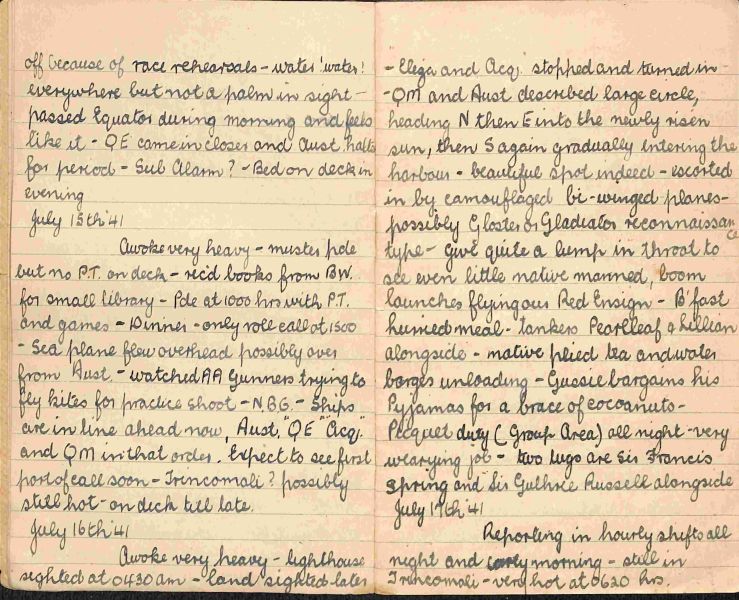 off because of race rehearsals - water! water!
everywhere but not a palm in sight -
passed Equator during morning and feels
like it - QE came in closer and Aust halts
for period - Sub Alarm? - Bed on deck in
evening
July 15th '41
Awoke very heavy - muster pde
but no P.T. on deck - rec'd books from B.W.
for small library - Pde at 1000 hrs with P.T.
and games - Dinner - only roll call at 1500
- Sea plane flew overhead possibly over
from Aust. - watched AA Gunners trying to
fly kites for practice shoot - N.B.G. - Ships
are in line ahead now, Aust. "QE" Acq."
and QM in that order. Expect to see first
port of call soon - Trincomali? possibly
still hot - on deck till late.
July 16th '41
Awoke very heavy - lighthouse
sighted at 0430 am - land sighted later
- Eliza and Acq. stopped and turned in -
- QM and Aust described large circle,
heading N then E into the newly risen
sun, then S again gradually intering the
harbour - beautiful spot indeed - escorted
in by camouflaged bi-winged planes -
possibly Gloster or Gladiator reconnaissance
type - give quite a lump in throat to
see even little native manned, boom
launches flying our Red Ensign - B'fast
hurried meal - tankers Pearlleaf & Lillian
alongside - native plied tea and water
barges unloading - Gussie bargains his
Pyjamas for a brace of cocoanuts -
Picquet duty (Group Area) all night - very
wearying job - two tugs are Sir Francis
Spring and Sir Guthrie Russell alongside
July 17th '41
Reporting in hourly shifts all
night and early morning - still in
Trincomali - very hot at 0620 hrs.